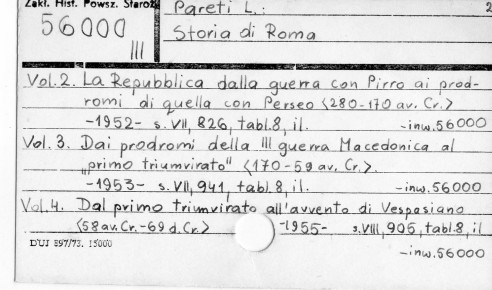 Zakł. Hist. Powsz. Staroż
Pareti L.:
2
56000
III
Storia di Roma
Vol.2. La Repubblica dalla guerra con Pirro ai prod-
romi di quella con Perseo <280-170 av. Cr.>
-1952- s. VII, 826, tabl.8, il. -inw.56000
Vol.3. Dai prodromi della III guerra Macedonica al
„primo triumvirato" <170-59 av. Cr.>.
-1953- s. VII, 941, tabl.8, il. -inw.56000
Vol.4. Dal primo triumvirato all'avvento di Vespasiano
<58 av. Cr.-69 d. Cr.> -1955- s. VIII, 905, tabl.8, il
DUJ 897/73. 15000
-inw.56000